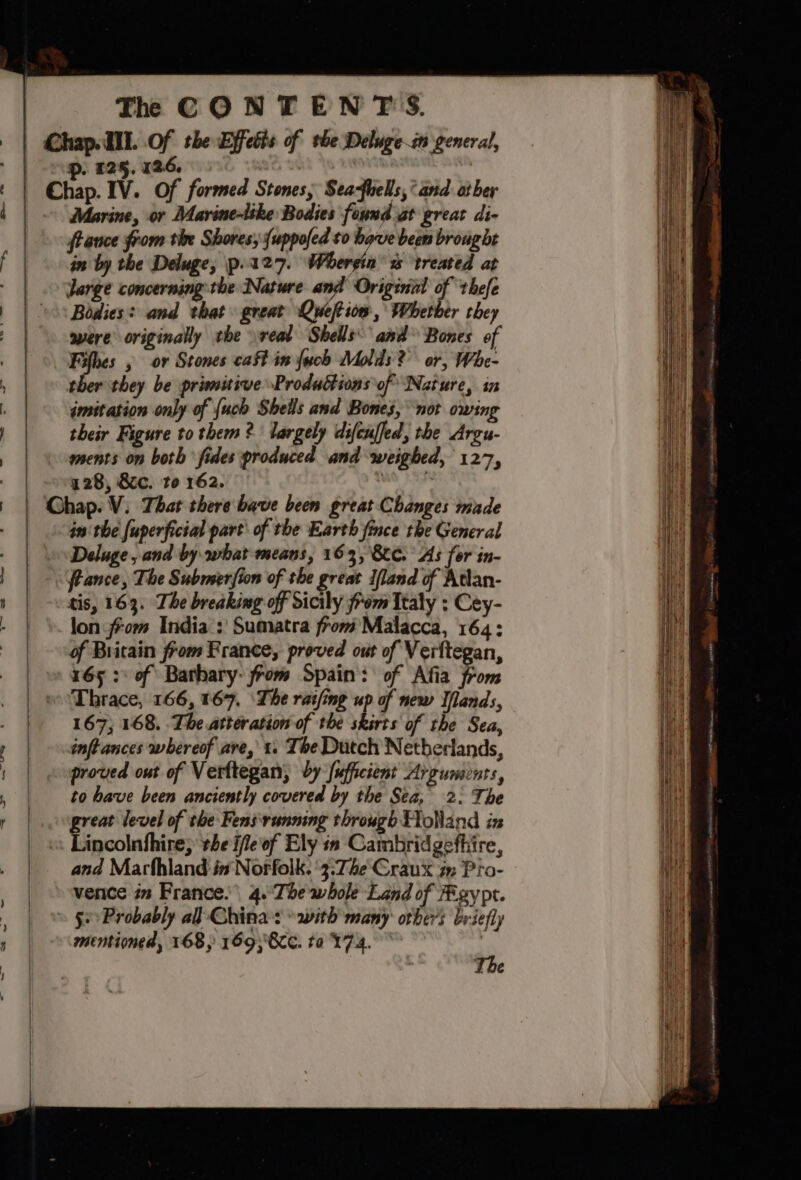 The CONTENTS.
Chap. III. Of the Effects of the Deluge in general,
p. 125. 126.
Chap. IV. Of formed Stones, Sea-ſhells, and other
Marine, or Marine-like Bodies found at great di-
ſtance from the Shores, ſuppoſed to have been brought
in by the Deluge, p. 127. Wherein is treated at
large concerning the Nature and Original of theſe
Bodies: and that great Queſtion, Whether they
were originally the real Shells and Bones of
Fiſhes, or Stones caſt in ſuch Molds? or, Whe-
ther they be primitive Productions of Nature, in
imitation only of ſuch Shells and Bones, not owing
their Figure to them? largely diſcuſſed, the Argu-
ments on both ſides produced and weighed, 127,
128, &c. to 162.
Chap. V. That there have been great Changes made
in the ſuperficial part of the Earth ſince the General
Deluge, and by what means, 163, &c. As for in-
ſtance, The Submerſion of the great Iſland of Atlan-
tis, 163. The breaking off Sicily from Italy: Cey-
lon from India: Sumatra from Malacca, 164:
of Britain from France, proved out of Verſtegan,
165: of Barbary from Spain: of Aſia from
Thrace, 166, 167. The raiſing up of new Iſlands,
167, 168. The atteration of the skirts of the Sea,
inſtances whereof are, 1. The Dutch Netherlands,
proved out of Verſtegan, by ſufficient Arguments,
to have been anciently covered by the Sea, 2. The
great level of the Fens running through Holland in
Lincolnſhire, the Iſle of Ely in Cambridgeſhire,
and Marſhland in Norfolk. 3. The Craux in Pro-
vence in France. 4. The whole Land of Ægypt.
5. Probably all China: with many others briefly
mentioned, 168, 169, &c. to 174.
The